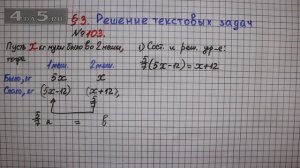 4DA5.RU
§3. Решение текстовых задач
№103.
Пусть x кг муки было во 2 мешке,
тогда
1 меш. 2 меш.
Было, кг 5x x
Стало, кг (5x-12) (x+12),
5/7
5/7 a = b
1) Сост. и реш. ур-е:
5/7(5x-12)=x+12